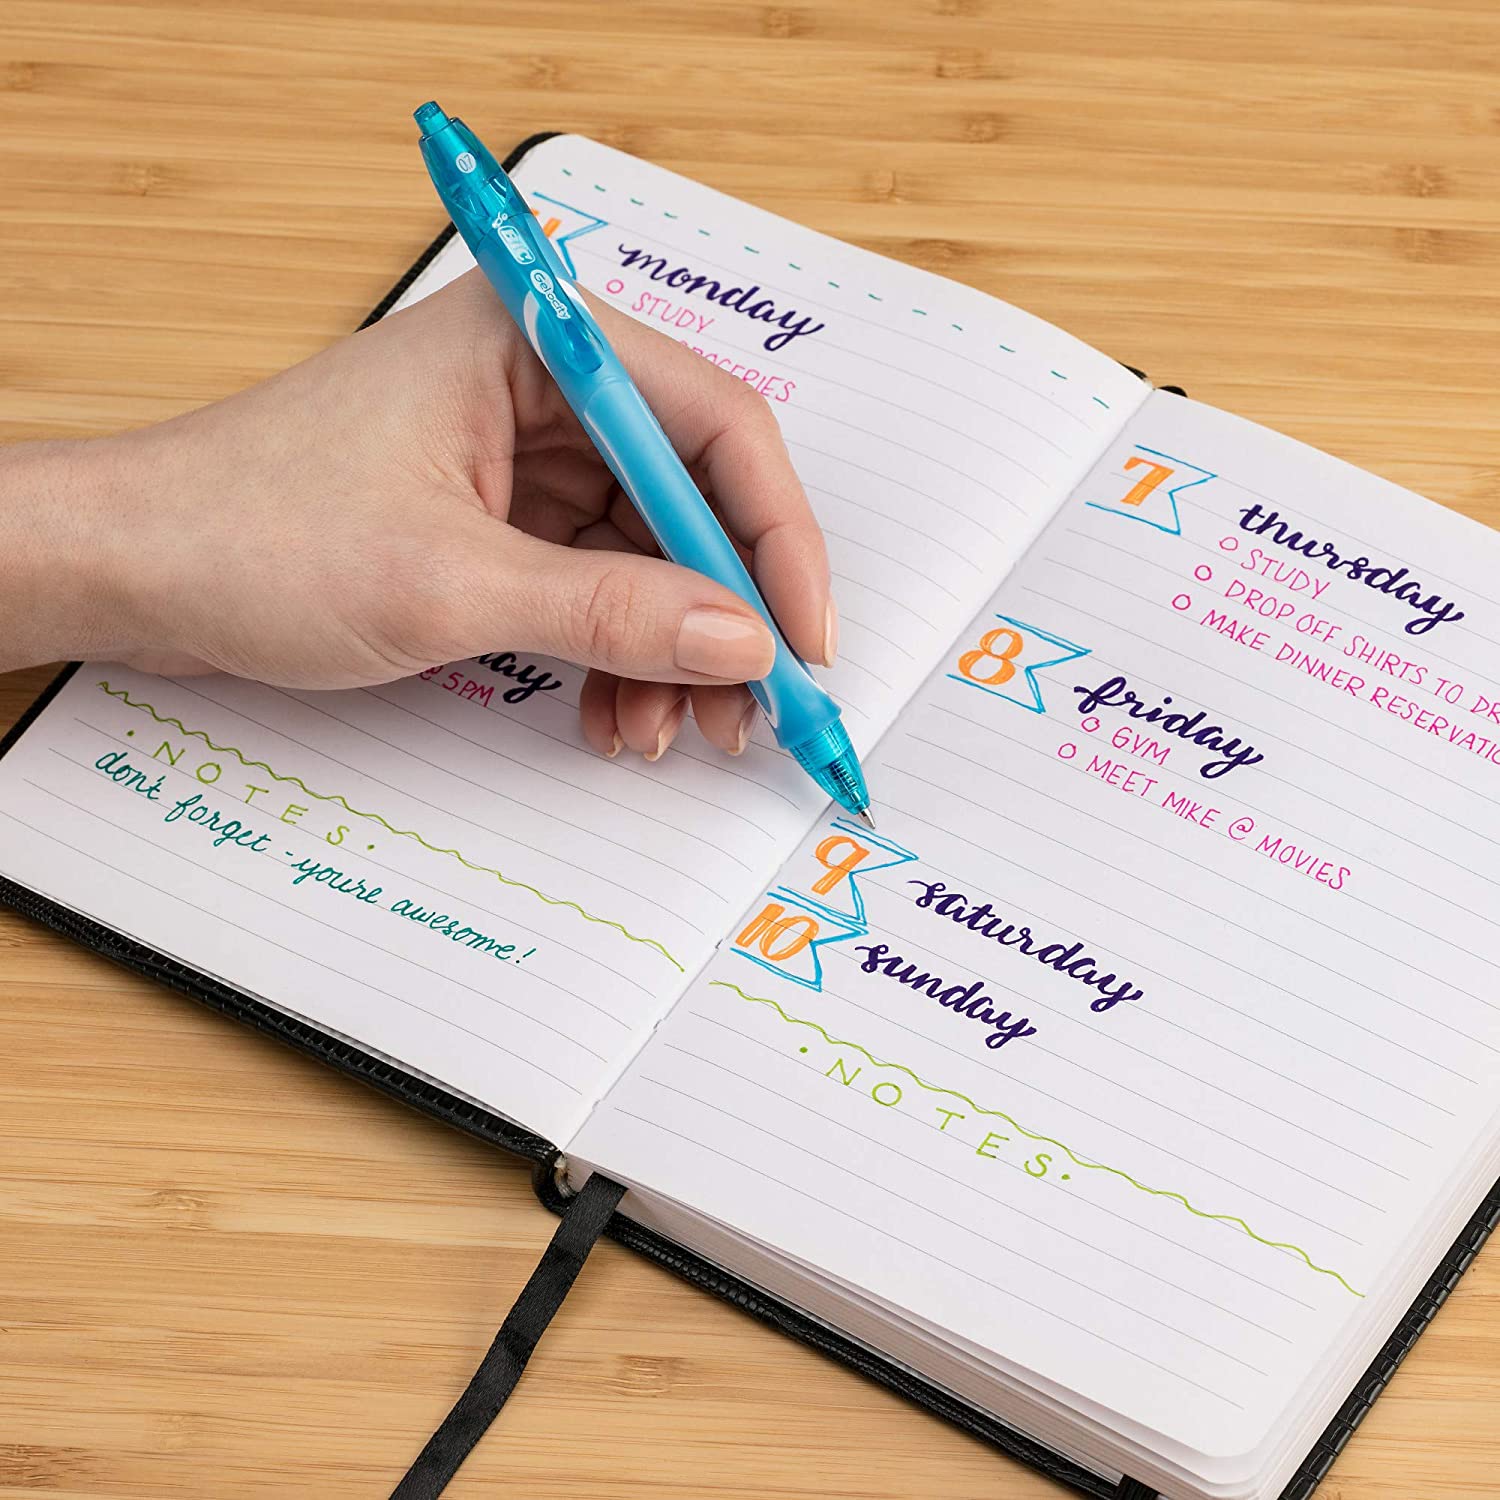 0.7
BIC
Gel-ocity
monday
STUDY
GROCERIES
day
@ 5PM
• NOTES •
don't forget - you're awesome!
7
thursday
STUDY
DROP OFF SHIRTS TO
MAKE DINNER
8
friday
GYM
MEET MIKE @ MOVIES
9
saturday
10
sunday
• NOTES •